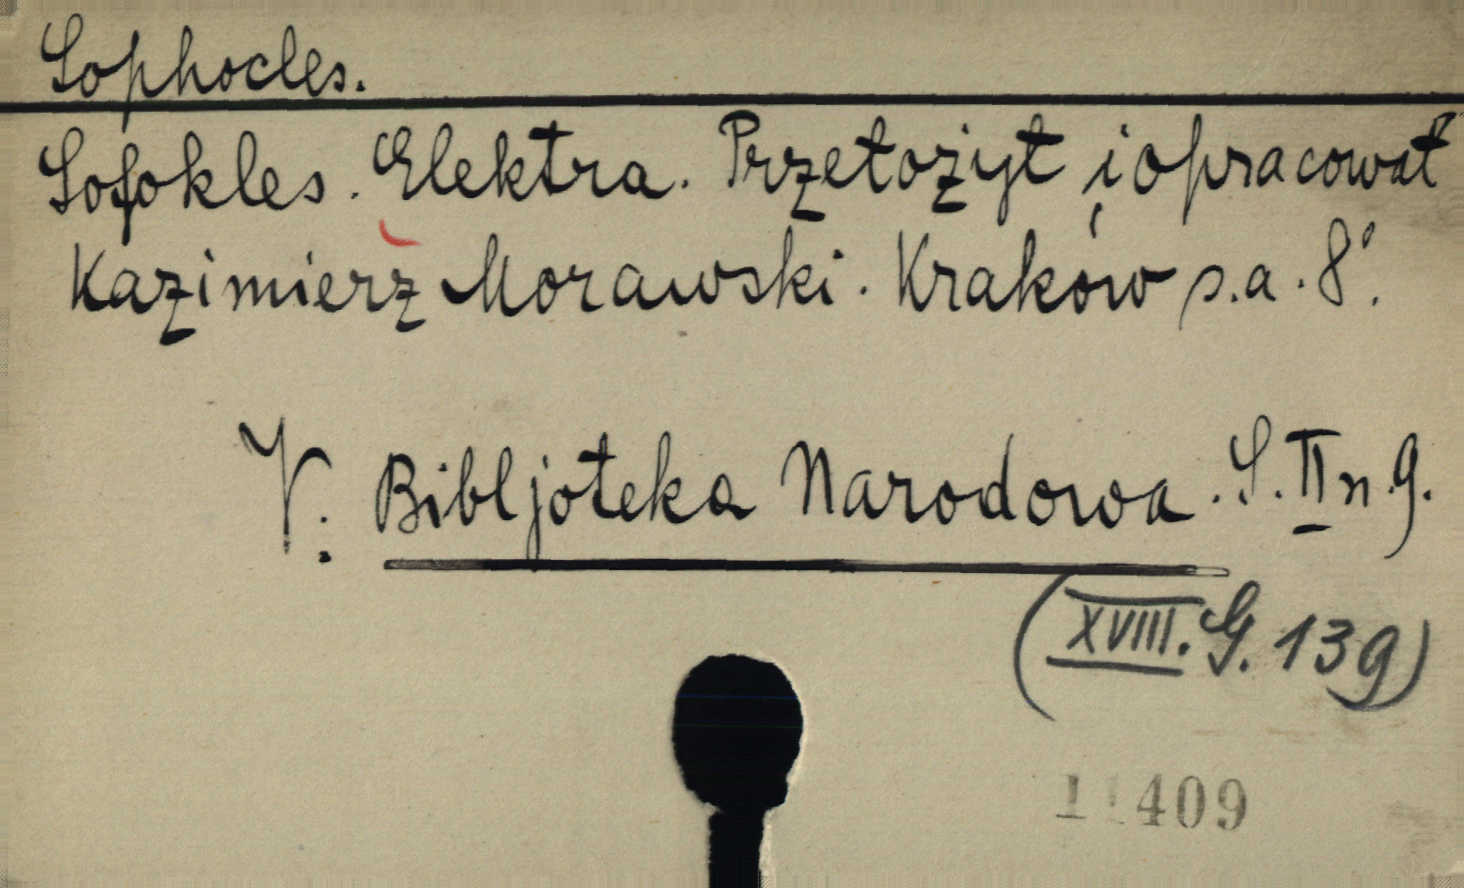 Sophocles.
Sofokles. Elektra. Przełożył i opracował
Kazimierz Morawski. Kraków s.a. 8°.
V. Bibljoteka Narodowa. S. II n. 9.
(XVIII. G. 139)
11409